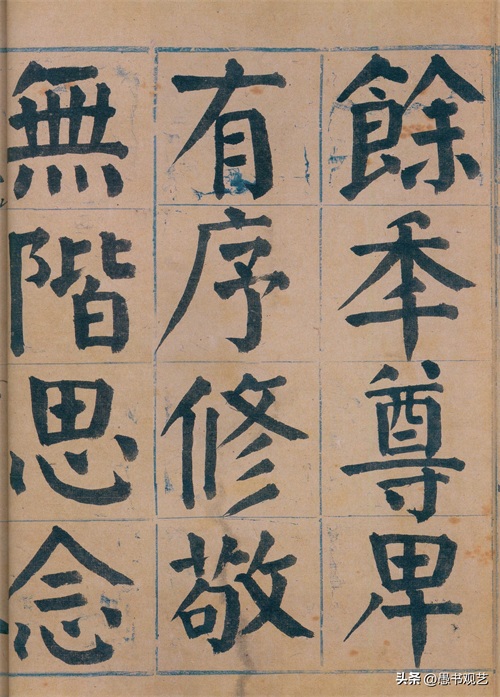 餘秊尊卑
有序修敬
無階思念
头条 @愚书观艺